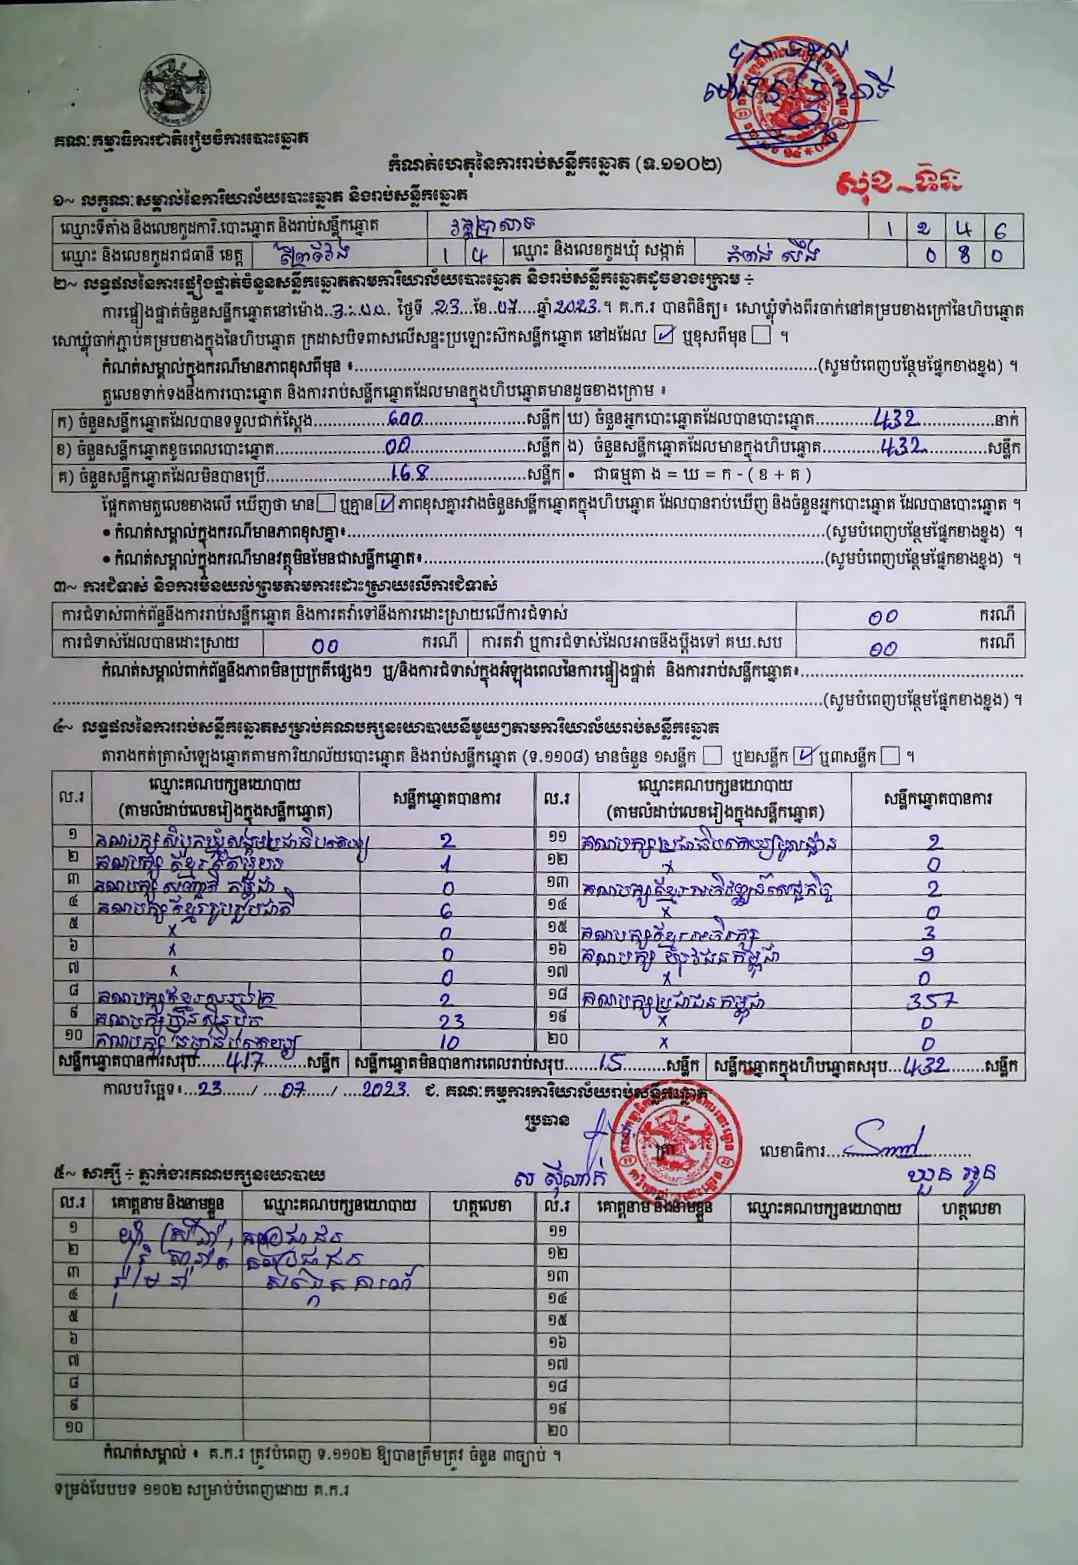 គណៈកម្មាធិការជាតិរៀបចំការបោះឆ្នោត
កំណត់ហេតុនៃការរាប់សន្លឹកឆ្នោត (ទ.១១០២)
១~ លក្ខណៈសម្គាល់នៃការិយាល័យបោះឆ្នោត និងរាប់សន្លឹកឆ្នោត
ឈ្មោះទីតាំង និងលេខកូដការិ.បោះឆ្នោត និងរាប់សន្លឹកឆ្នោត 1 2 4 6
ឈ្មោះ និងលេខកូដរាជធានី ខេត្ត ព្រៃវែង 1 4 ឈ្មោះ និងលេខកូដឃុំ សង្កាត់ 0 8 0
២~ លទ្ធផលនៃការផ្ទៀងផ្ទាត់ចំនួនសន្លឹកឆ្នោតតាមការិយាល័យបោះឆ្នោត និងរាប់សន្លឹកឆ្នោតដូចខាងក្រោម ÷
ការផ្ទៀងផ្ទាត់ចំនួនសន្លឹកឆ្នោតនៅម៉ោង..3:00 ថ្ងៃទី .23...ខែ..07....ឆ្នាំ 2023.។ គ.ក.រ បានពិនិត្យ៖ សោឃ្លុំទាំងពីរចាក់នៅគម្របខាងក្រៅនៃហិបឆ្នោត
សោឃ្លុំចាក់ភ្ជាប់គម្របខាងក្នុងនៃហិបឆ្នោត ក្រដាសបិទពាសលើសន្ទះប្រឡោះស៊កសន្លឹកឆ្នោត នៅដដែល ☑ ឬខុសពីមុន ☐ ។
កំណត់សម្គាល់ក្នុងករណីមានភាពខុសពីមុន ៖........(សូមបំពេញបន្ថែមផ្នែកខាងខ្នង) ។
តួលេខទាក់ទងនឹងការបោះឆ្នោត និងការរាប់សន្លឹកឆ្នោតដែលមានក្នុងហិបឆ្នោតមានដូចខាងក្រោម ៖
ក) ចំនួនសន្លឹកឆ្នោតដែលបានទទួលជាក់ស្តែង........600........សន្លឹក ឃ) ចំនួនអ្នកបោះឆ្នោតដែលបានបោះឆ្នោត........432........នាក់
ខ) ចំនួនសន្លឹកឆ្នោតខូចពេលបោះឆ្នោត........00........សន្លឹក ង) ចំនួនសន្លឹកឆ្នោតដែលមានក្នុងហិបឆ្នោត........432........សន្លឹក
គ) ចំនួនសន្លឹកឆ្នោតដែលមិនបានប្រើ........168........សន្លឹក • ជាធម្មតា ង = ឃ = ក - ( ខ + គ )
ផ្អែកតាមតួលេខខាងលើ ឃើញថា មាន ☐ ឬគ្មាន ☑ ភាពខុសគ្នារវាងចំនួនសន្លឹកឆ្នោតក្នុងហិបឆ្នោត ដែលបានរាប់ឃើញ និងចំនួនអ្នកបោះឆ្នោត ដែលបានបោះឆ្នោត ។
• កំណត់សម្គាល់ក្នុងករណីមានភាពខុសគ្នា៖........(សូមបំពេញបន្ថែមផ្នែកខាងខ្នង) ។
• កំណត់សម្គាល់ក្នុងករណីមានវត្ថុមិនមែនជាសន្លឹកឆ្នោត៖........(សូមបំពេញបន្ថែមផ្នែកខាងខ្នង) ។
៣~ ការជំទាស់ និងការមិនយល់ព្រមតាមការដោះស្រាយលើការជំទាស់
ការជំទាស់ពាក់ព័ន្ធនឹងការរាប់សន្លឹកឆ្នោត និងការតវ៉ាទៅនឹងការដោះស្រាយលើការជំទាស់ 00 ករណី
ការជំទាស់ដែលបានដោះស្រាយ 00 ករណី ការតវ៉ា ឬការជំទាស់ដែលអាចនឹងប្តឹងទៅ គឃ.សប 00 ករណី
កំណត់សម្គាល់ពាក់ព័ន្ធនឹងភាពមិនប្រក្រតីផ្សេងៗ ឬ/និងការជំទាស់ក្នុងអំឡុងពេលនៃការផ្ទៀងផ្ទាត់ និងការរាប់សន្លឹកឆ្នោត៖........
........(សូមបំពេញបន្ថែមផ្នែកខាងខ្នង) ។
៤~ លទ្ធផលនៃការរាប់សន្លឹកឆ្នោតសម្រាប់គណបក្សនយោបាយនីមួយៗតាមការិយាល័យរាប់សន្លឹកឆ្នោត
តារាងកត់ត្រាសំឡេងឆ្នោតតាមការិយាល័យបោះឆ្នោត និងរាប់សន្លឹកឆ្នោត (ទ.១១០៨) មានចំនួន ១សន្លឹក ☐ ឬ២សន្លឹក ☑ ឬ៣សន្លឹក ☐ ។
ល.រ ឈ្មោះគណបក្សនយោបាយ (តាមលំដាប់លេខរៀងក្នុងសន្លឹកឆ្នោត) សន្លឹកឆ្នោតបានការ ល.រ ឈ្មោះគណបក្សនយោបាយ (តាមលំដាប់លេខរៀងក្នុងសន្លឹកឆ្នោត) សន្លឹកឆ្នោតបានការ
១ គណបក្ស 2 ១១ គណបក្សប្រជាធិបតេយ្យមូលដ្ឋាន 2
២ គណបក្ស ខ្មែរតែមួយ 1 ១២ x 0
៣ គណបក្ស សញ្ជាតិ កម្ពុជា 0 ១៣ គណបក្សខ្មែរអភិវឌ្ឍន៍សេដ្ឋកិច្ច 2
៤ គណបក្ស ខ្មែររួបរួមជាតិ 6 ១៤ x 0
៥ x 0 ១៥ គណបក្សខ្មែរអភិរក្ស 3
៦ x 0 ១៦ គណបក្ស យុវជនកម្ពុជា 9
៧ x 0 ១៧ x 0
៨ គណបក្ស 2 ១៨ គណបក្សប្រជាជនកម្ពុជា 357
៩ គណបក្សហ្វ៊ុនស៊ិនប៉ិច 23 ១៩ x 0
១០ គណបក្ស 10 ២០ x 0
សន្លឹកឆ្នោតបានការសរុប......417......សន្លឹក សន្លឹកឆ្នោតមិនបានការពេលរាប់សរុប......15......សន្លឹក សន្លឹកឆ្នោតក្នុងហិបឆ្នោតសរុប...432......សន្លឹក
កាលបរិច្ឆេទ៖...23...../ ....07....../ ....2023. ជ. គណៈកម្មការការិយាល័យរាប់សន្លឹកឆ្នោត
ប្រធាន
លេខាធិការ
៥~ សាក្សី ÷ ភ្នាក់ងារគណបក្សនយោបាយ
ល.រ គោត្តនាម និងនាមខ្លួន ឈ្មោះគណបក្សនយោបាយ ហត្ថលេខា ល.រ គោត្តនាម និងនាមខ្លួន ឈ្មោះគណបក្សនយោបាយ ហត្ថលេខា
១ ១១
២ ១២
៣ ១៣
៤ ១៤
៥ ១៥
៦ ១៦
៧ ១៧
៨ ១៨
៩ ១៩
១០ ២០
កំណត់សម្គាល់ ៖ គ.ក.រ ត្រូវបំពេញ ទ.១១០២ ឱ្យបានត្រឹមត្រូវ ចំនួន ៣ច្បាប់ ។
ទម្រង់បែបបទ ១១០២ សម្រាប់បំពេញដោយ គ.ក.រ